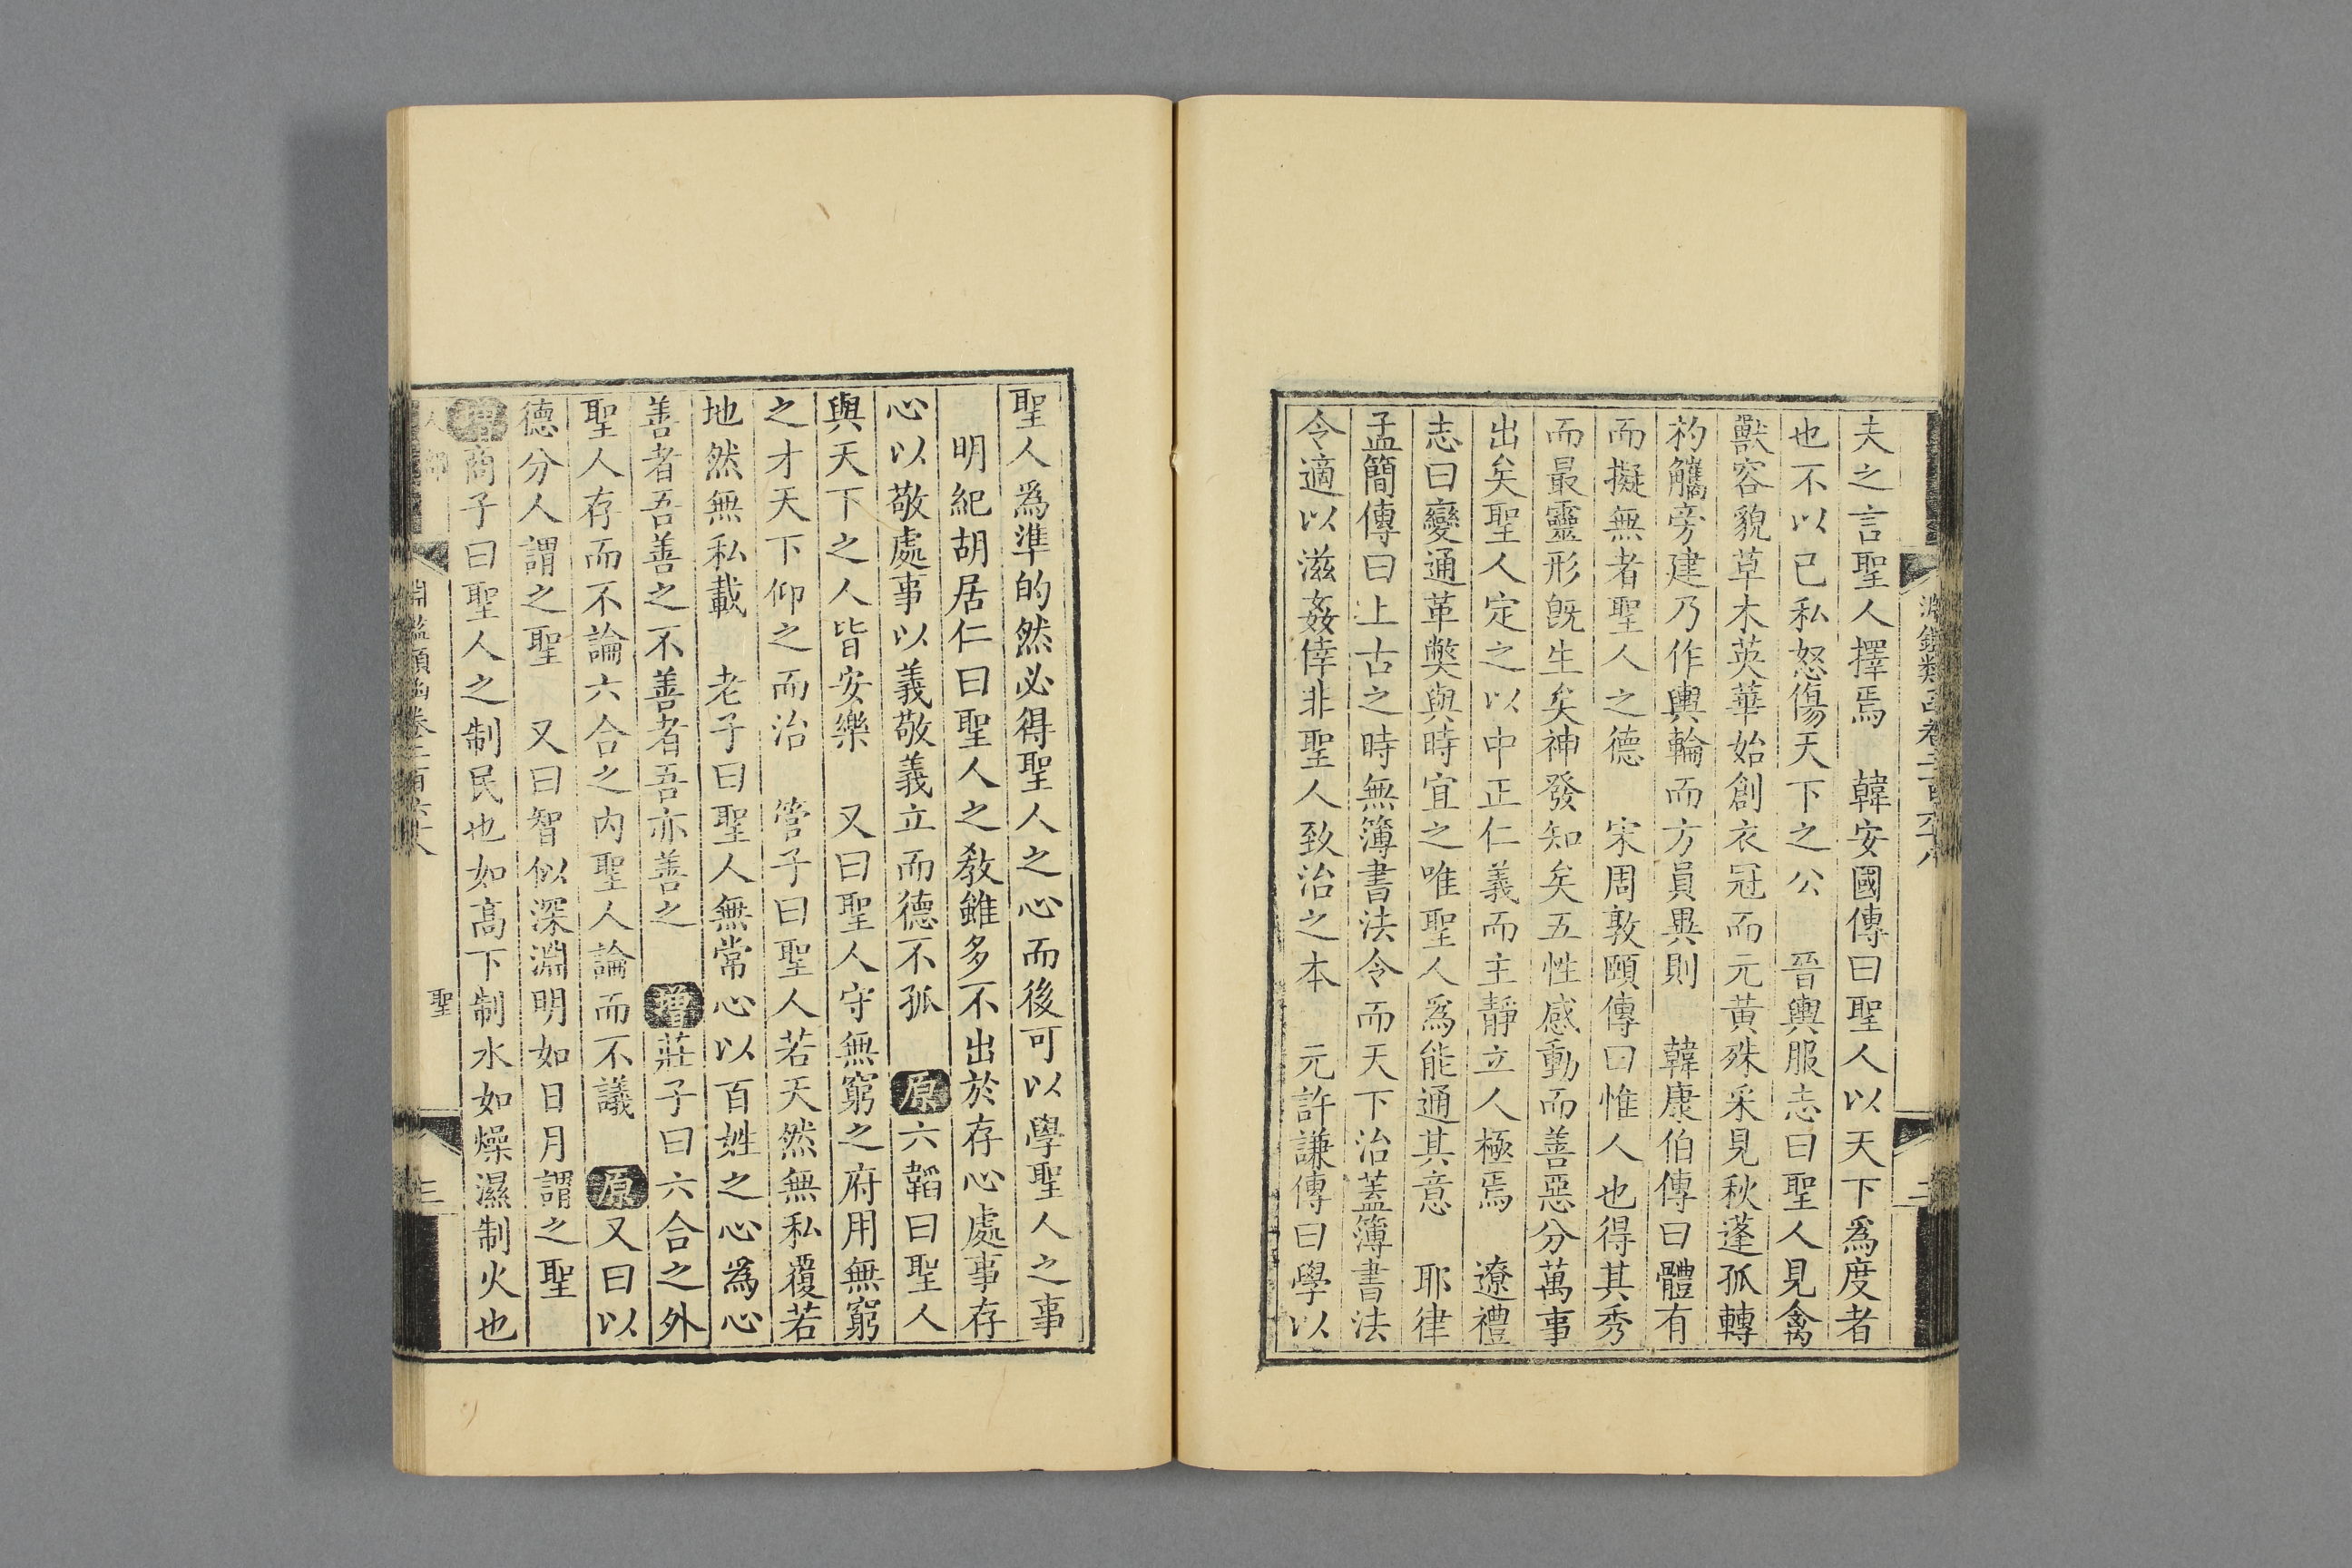 夫之言聖人擇焉　韓安國傳曰聖人以天下爲度者
也不以己私怒傷天下之公　晉輿服志曰聖人見禽
獸容貌草木英華始創衣冠而元黃殊采見秋蓬孤轉
杓觿旁建乃作輿輪而方員異則　韓康伯傳曰體有
而擬無者聖人之德　宋周敦頤傳曰惟人也得其秀
而最靈形旣生矣神發知矣五性感動而善惡分萬事
出矣聖人定之以中正仁義而主靜立人極焉　遼禮
志曰變通革獘與時宜之唯聖人爲能通其意　耶律
孟簡傳曰上古之時無簿書法令而天下治蓋簿書法
令適以滋姦倖非聖人致治之本　元許謙傳曰學以
聖人爲準的然必得聖人之心而後可以學聖人之事
明紀胡居仁曰聖人之敎雖多不出於存心處事存
心以敬處事以義敬義立而德不孤　原六韜曰聖人
與天下之人皆安樂　又曰聖人守無窮之府用無窮
之才天下仰之而治　管子曰聖人若天然無私覆若
地然無私載　老子曰聖人無常心以百姓之心爲心
善者吾善之不善者吾亦善之　增莊子曰六合之外
聖人存而不論六合之內聖人論而不議　原又曰以
德分人謂之聖　又曰智似深淵明如日月謂之聖
增商子曰聖人之制民也如高下制水如燥濕制火也
淵鑑類函卷二百六十八
聖
三